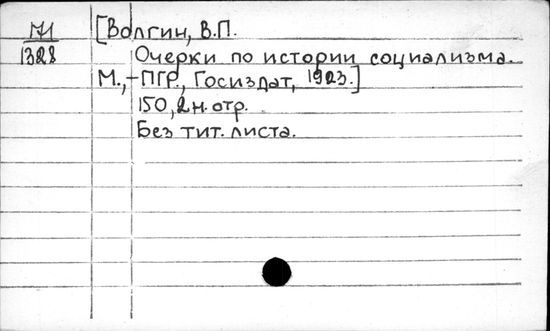 71
1328
[Волгин, В.П.
Очерки по истории социализма.
М.,-ПГР., Госиздат, 1923.]
150, 2 н. стр.
Без тит. листа.